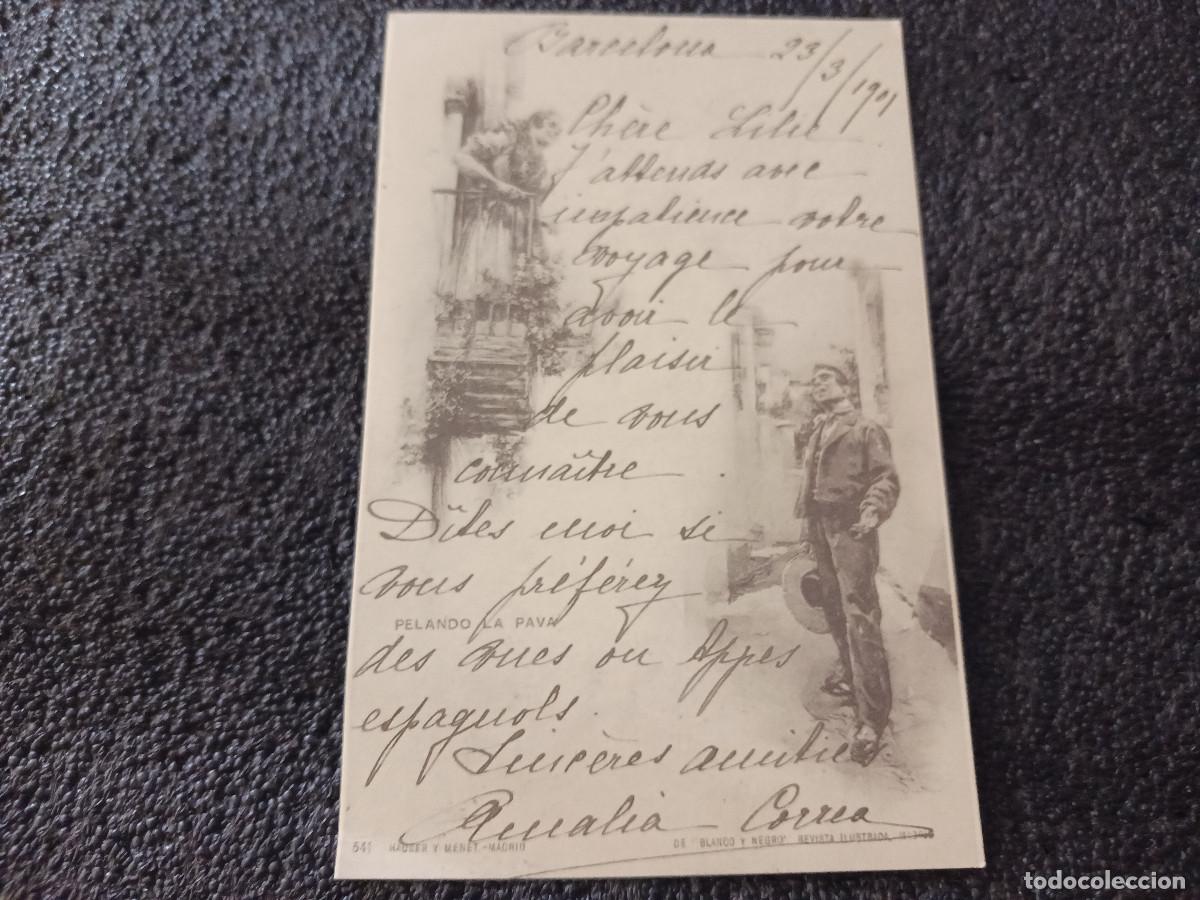 Barcelona 23/3/1901
Chère Lilie
J'attends avec
impatience votre
voyage pour
avoir le
plaisir
de vous
connaître.
Dîtes moi si
vous préférez
PELANDO LA PAVA
des vues ou types
espagnols.
Sincères amitiés
Amalia Correa
541 HAUSER Y MENET.-MADRID DE "BLANCO Y NEGRO" REVISTA ILUSTRADA,
todocoleccion